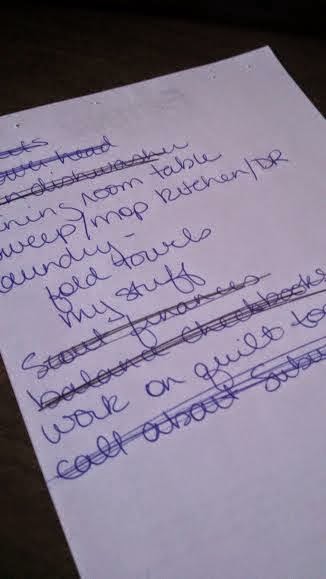 head
dishwasher
ining room table
sweep/mop kitchen/DR
aundry -
fold towels
my stuff
Scout finances
balance checkbooks
work on quilt to
call about